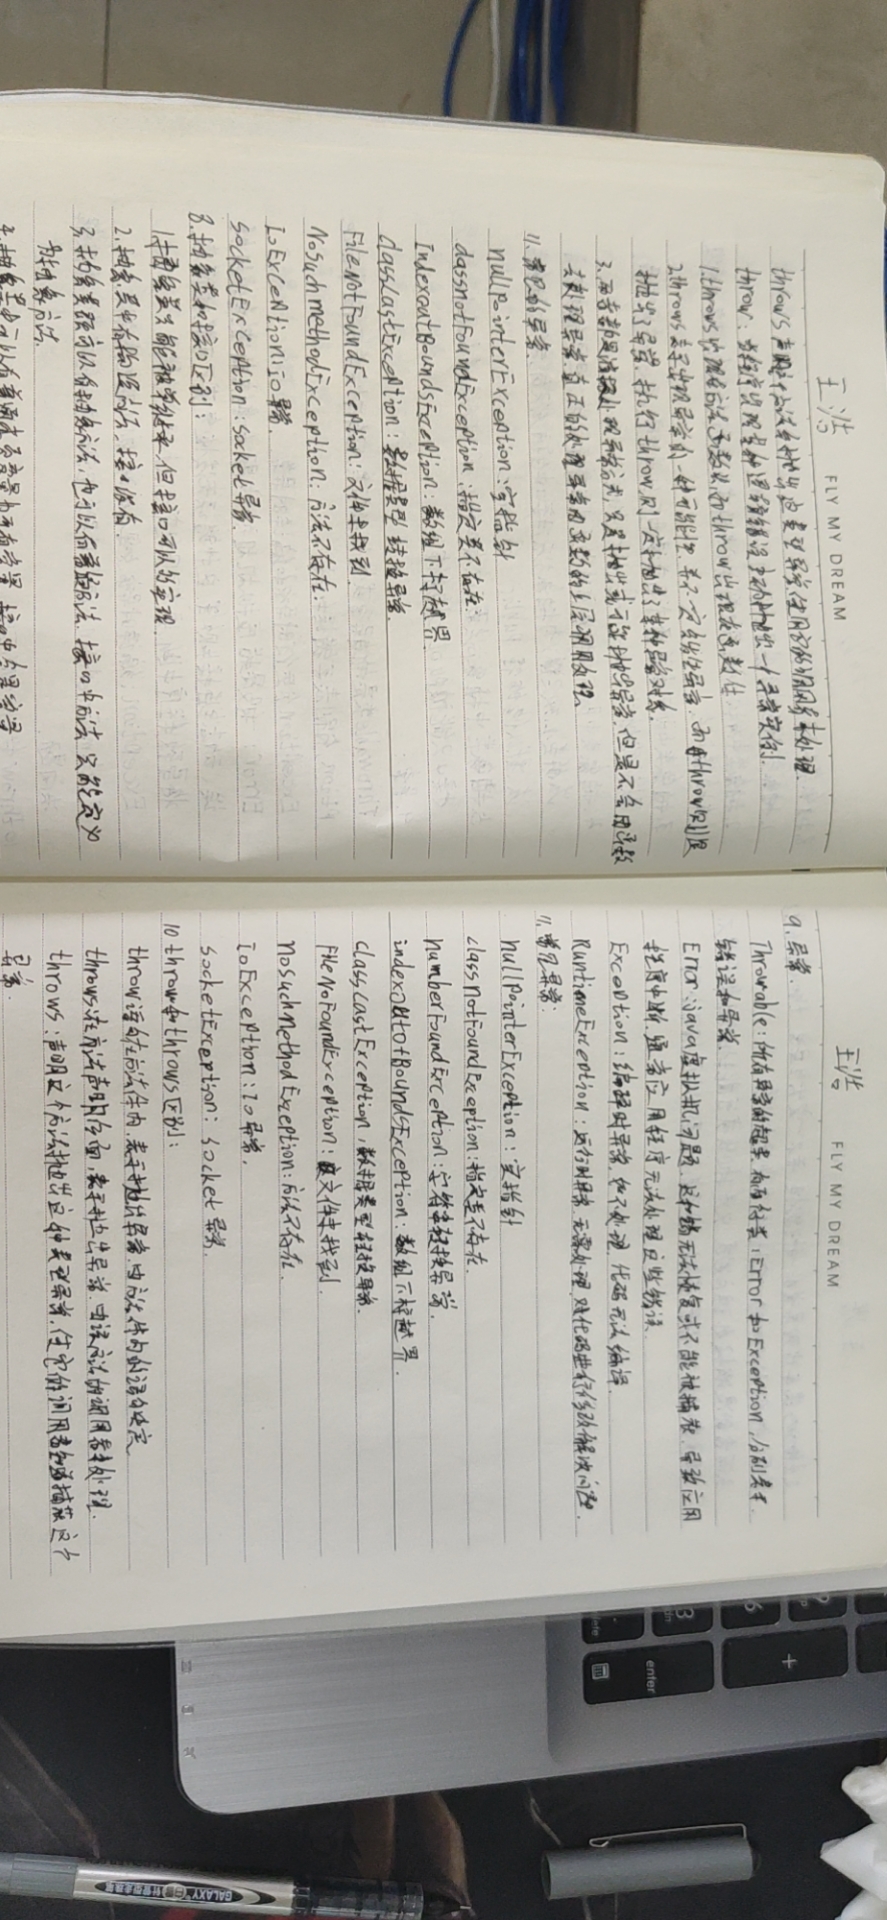 王浩 FLY MY DREAM
throws声明这个方法会抛出这类型异常使用它的调用者来处理
throw：当程序出现某种逻辑错误主动抛出一个异常实例.
1.throws出现在方法函数头而throw出现在函数体
2.throws表示出现异常的一种可能性.并不一定会发生异常.而throw则是
抛出了异常.执行throw则一定抛出了某种异常对象.
3.两者都是消极处理异常方式.只是抛出或可能抛出异常.但是不会由函数
去处理异常.真正的处理异常由函数的上层调用处理.
11.常见的异常
nullPointerException：空指针
classnotFoundException：指定类不存在
IndexoutBoundsException：数组下标越界
classCastException：数据类型转换异常.
FileNotFoundException：文件未找到
NosuchmethodException：方法不存在：
IoException：io异常.
SocketException：socket异常.
8.抽象类和接口区别：
1.抽象类只能被单继承.但接口可以多实现.
2.抽象类中有构造方法.接口没有.
3.抽象类既可以有抽象方法.也可以有普通方法.接口中方法只能定义
为抽象方法.
王浩 FLY MY DREAM
9.异常.
Throwable：所有异常的超类.有两个子类：Error和Exception.分别表示
错误和异常.
Error：java虚拟机问题.这种错无法恢复或不能被捕获.导致应用
程序中断.通常应用程序无法处理这些错误.
Exception：编译时异常.如不处理.代码无法编译.
RuntimeException：运行时异常.无需处理.对代码进行修改解决问题.
11.常见异常：
nullpointerException：空指针
classnotFoundException：指定类不存在.
numberFoundException：字符串转换异常.
indexoutofBoundsException：数组下标越界.
classcastException：数据类型转换异常.
FileNoFoundException：文件未找到.
nosuchmethodException：方法不存在.
ioException：io异常.
socketException：socket异常.
10 throw和throws区别：
throw语句在方法体内.表示抛出异常.由方法体内的语句处理
throws在方法声明后面.表示抛出异常.由该方法的调用者来处理.
throws：声明这个方法抛出这种类型异常.使它的调用者知道捕获这个
异常.
GALAXY
enter